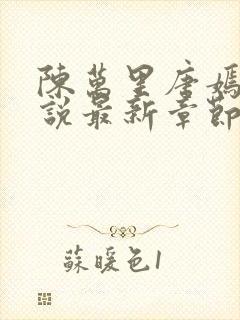 陳萬里唐嫣
說最新章節
蘇暖色1